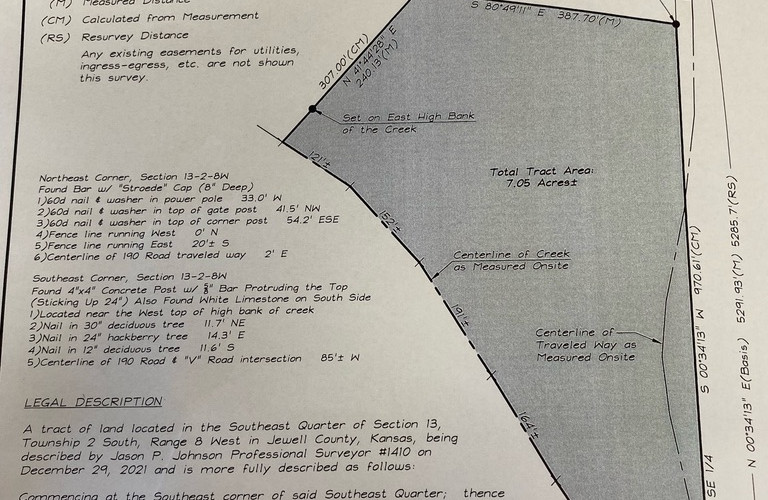 (M) Measured Distance
(CM) Calculated from Measurement
(RS) Resurvey Distance
Any existing easements for utilities,
ingress-egress, etc. are not shown
this survey.
S 80°49'11" E 387.70'(M)
307.00'(CM)
N 41°44'28" E
240.13'(M)
Set on East High Bank
of the Creek
121'±
Total Tract Area:
7.05 Acres±
Northeast Corner, Section 13-2-8W
Found Bar w/ "Stroede" Cap (8" Deep)
1)60d nail & washer in power pole 33.0' W
2)60d nail & washer in top of gate post 41.5' NW
3)60d nail & washer in top of corner post 54.2' ESE
4)Fence line running West 0' N
5)Fence line running East 20'± S
6)Centerline of 190 Road traveled way 2' E
152'±
Centerline of Creek
as Measured Onsite
Southeast Corner, Section 13-2-8W
Found 4"x4" Concrete Post w/ ⅝" Bar Protruding the Top
(Sticking Up 24") Also Found White Limestone on South Side
1)Located near the West top of high bank of creek
2)Nail in 30" deciduous tree 11.7' NE
3)Nail in 24" hackberry tree 14.3' E
4)Nail in 12" deciduous tree 11.6' S
5)Centerline of 190 Road & "V" Road intersection 85'± W
191'±
Centerline of
Traveled Way as
Measured Onsite
164'±
S 00°34'13" W 970.61'(CM)
N 00°34'13" E(Basis) 5291.93'(M) 5285.7'(RS)
SE 1/4
LEGAL DESCRIPTION
A tract of land located in the Southeast Quarter of Section 13,
Township 2 South, Range 8 West in Jewell County, Kansas, being
described by Jason P. Johnson Professional Surveyor #1410 on
December 29, 2021 and is more fully described as follows:
Commencing at the Southeast corner of said Southeast Quarter; thence